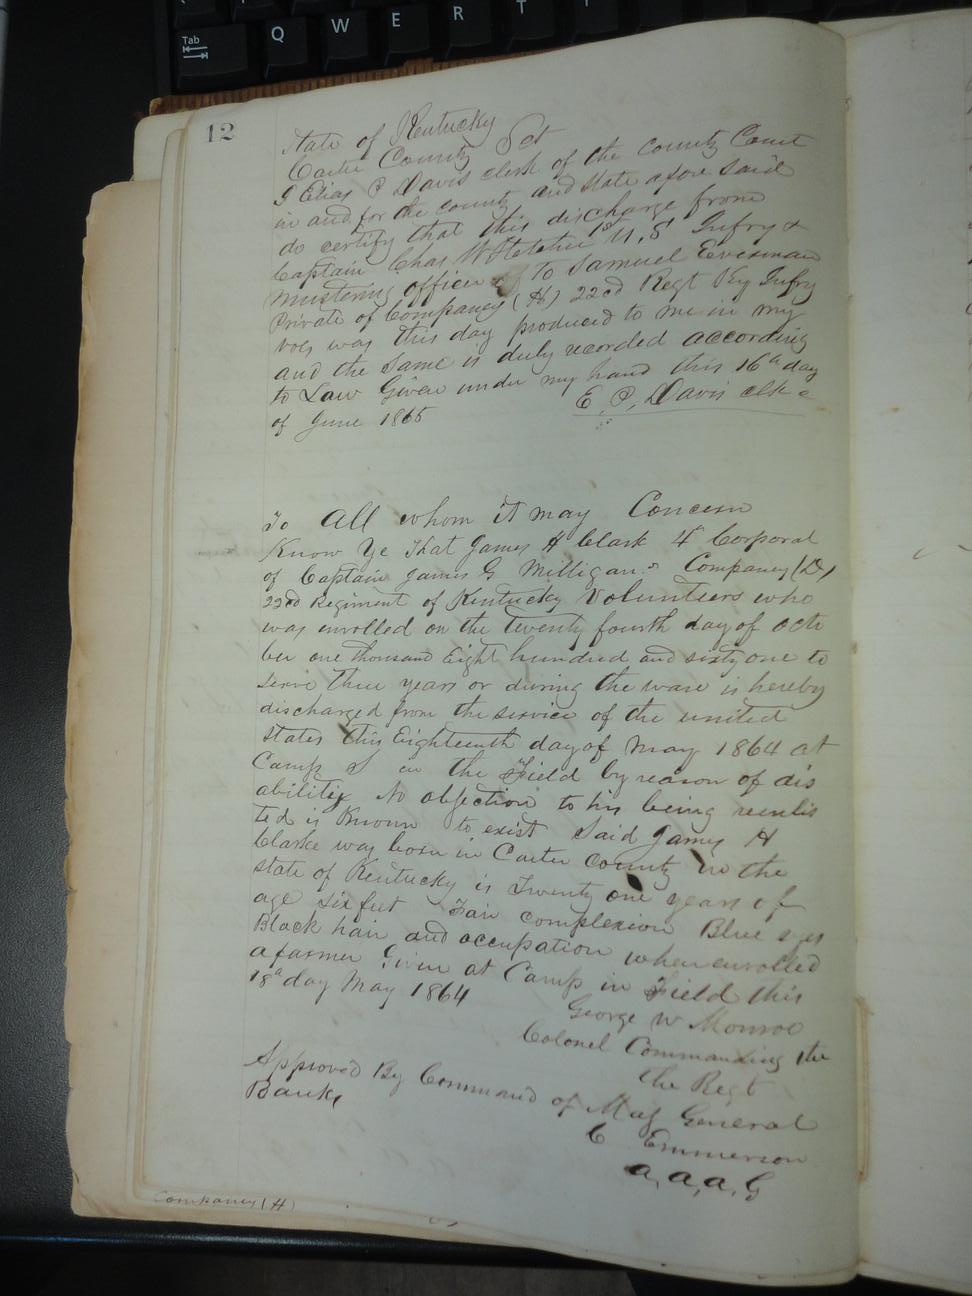 Tab
Q W E R T
12
State of Kentucky
Carter County Sct
I Elias P Davis clerk of the county Court
in and for the county and state afore said
do certify that this discharge from
Captain Chas W 1st U,S Infry &
mustering officer to Samuel Eversman
Private of Company (H) 22nd Regt Ky Infry
vols was this day produced to me in my
and the same is duly recorded according
to Law Given under my hand this 16th day
of June 1865 E, P, Davis clk
To All whom it may Concern
Know Ye That James H Clark 4 Corporal
of Captain James G Milligans Company (D)
22nd Regiment of Kentucky Volunteers who
was enrolled on the twenty fourth day of octo
ber one thousand Eight hundred and sixty one to
serve three years or during the ware is hereby
discharged from the service of the united
states this Eighteenth day of May 1864 at
Camp in the Field by reason of dis
ability No objection to his being reenlis
ted is Known to exist Said James H
Clarke was born in Carter county in the
state of Kentucky is Twenty one years of
age six feet Fair complexion Blue eyes
Black hair and occupation when enrolled
a farmer Given at Camp in Field this
18th day May 1864
George W Monroe
Colonel Commanding the
the Regt
Approved By Command of Maj General
Banks
C Emmerson
a, a, a, G
Company (H)